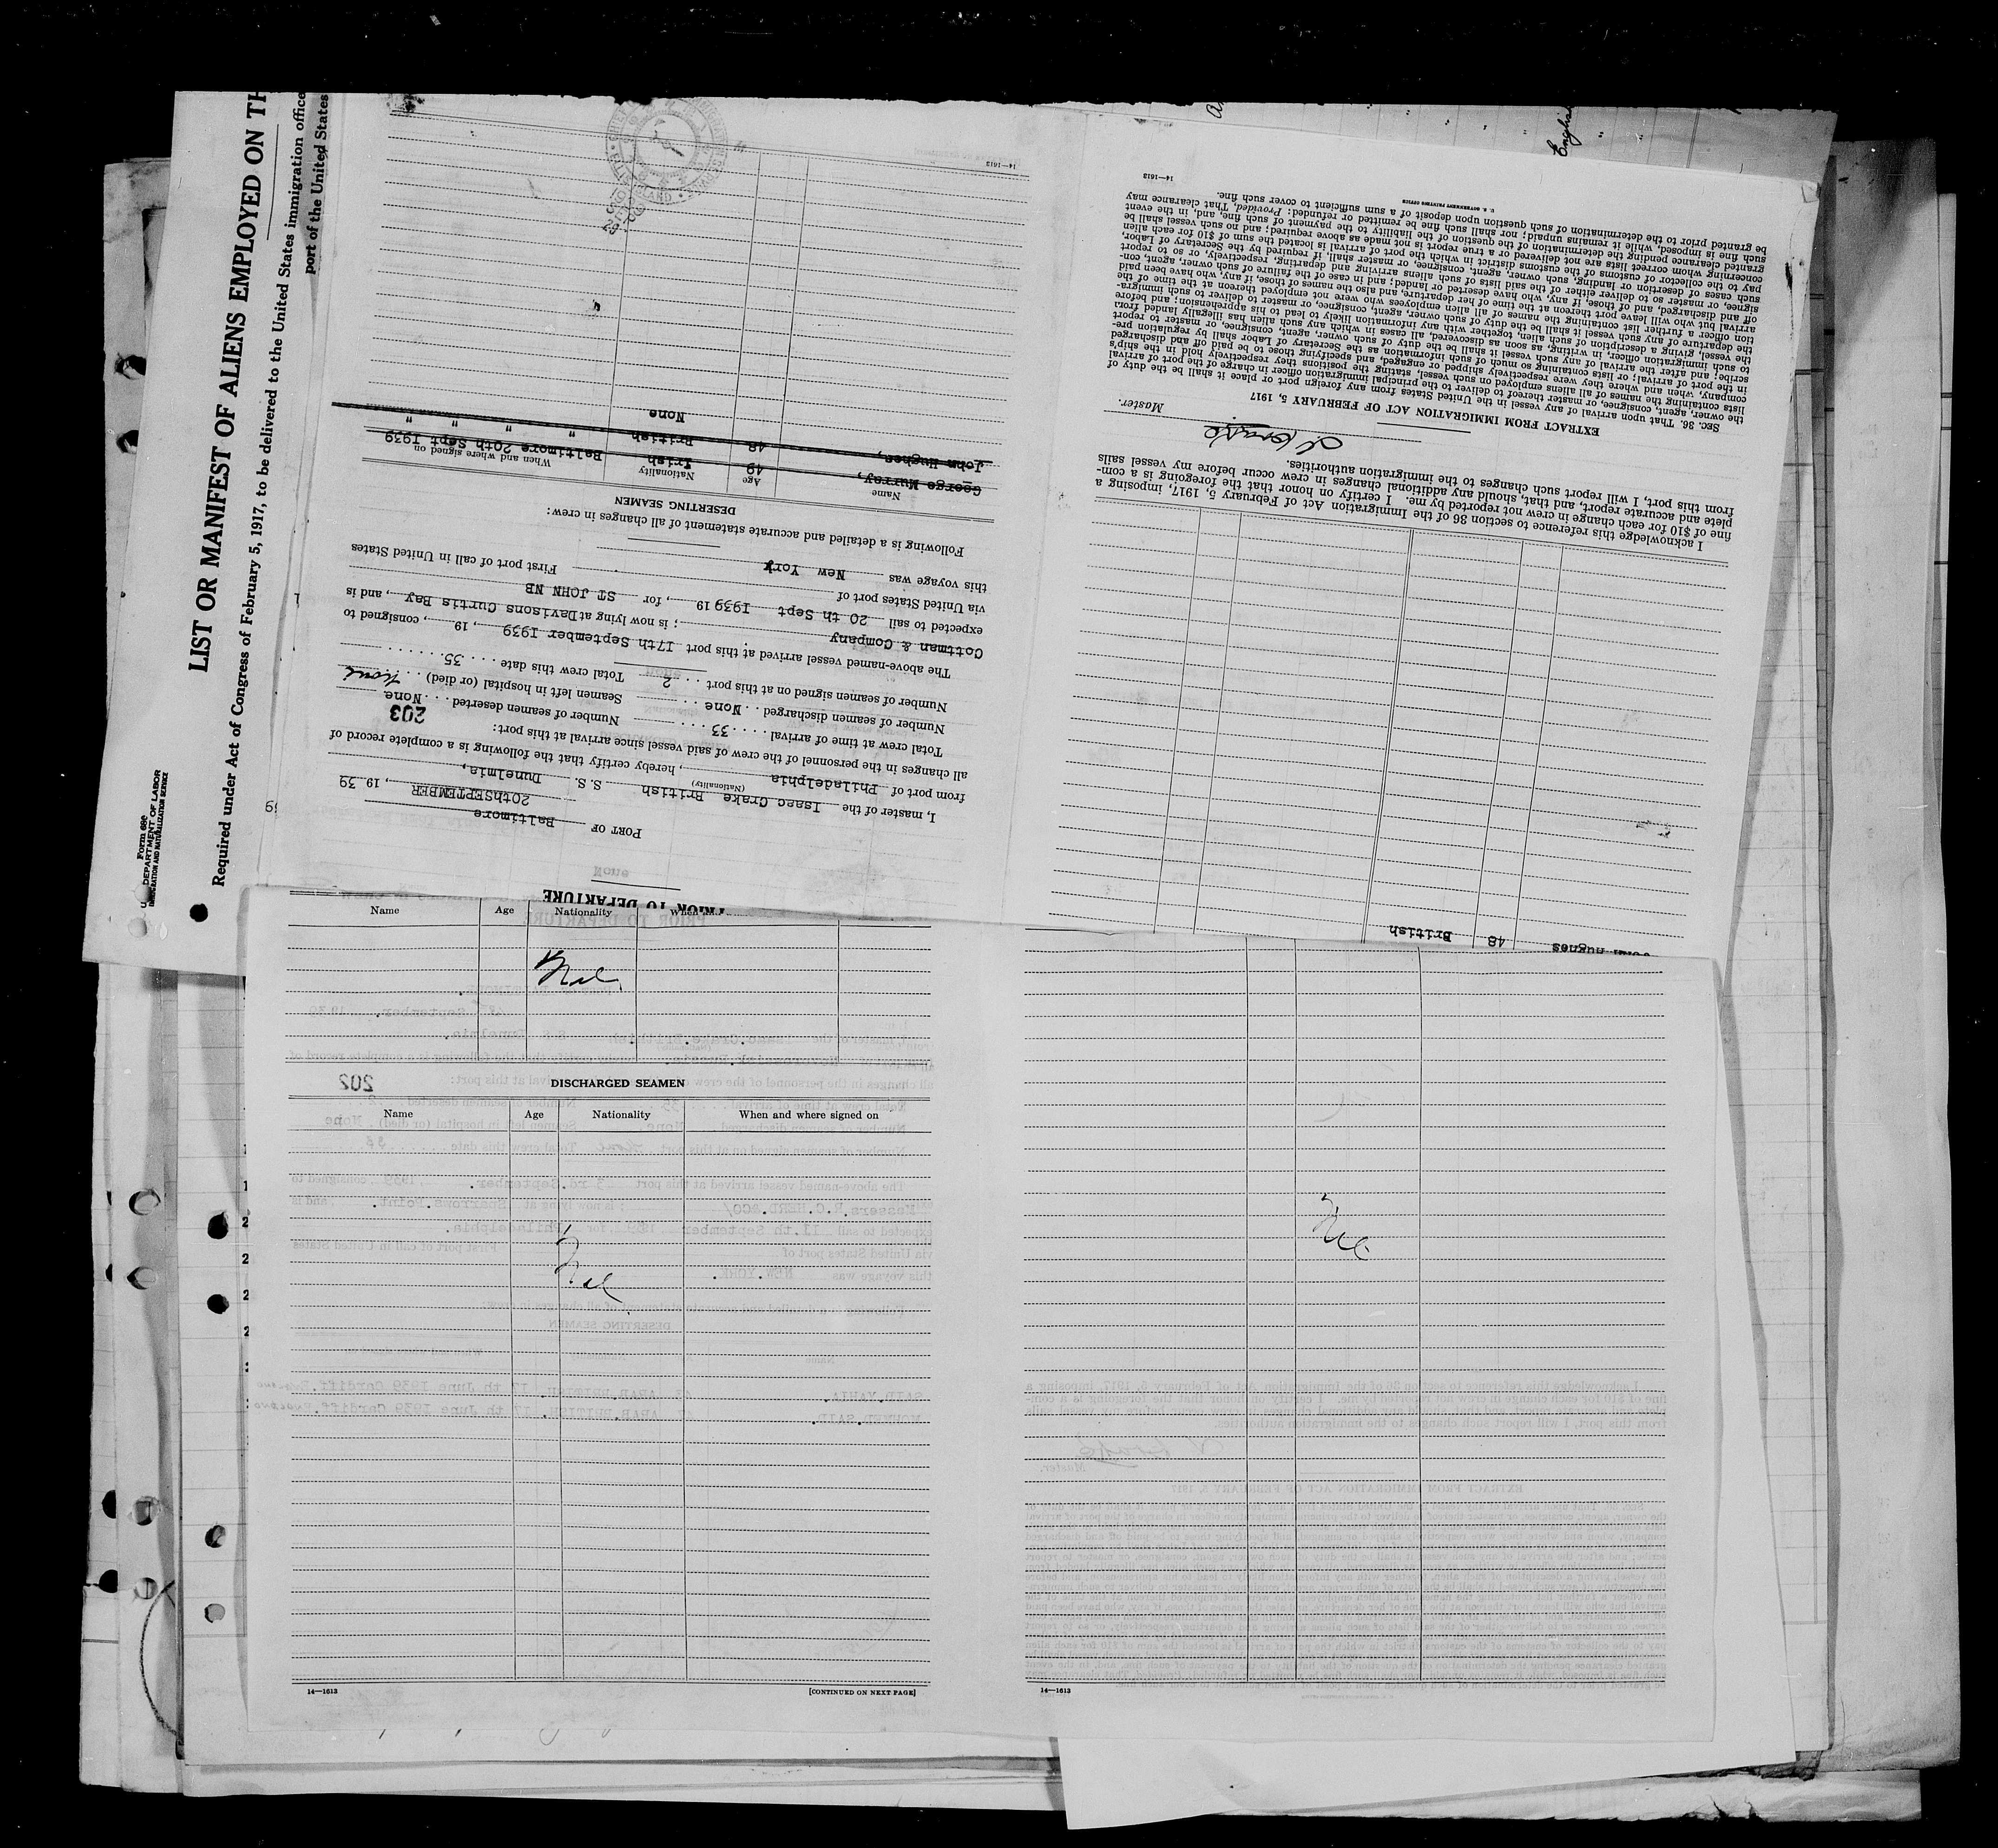 LIST OR MANIFEST OF ALIENS EMPLOYED ON TH
Required under Act of Congress of February 5, 1917, to be delivered to the United States immigration office
port of the United States
Form 689
DEPARTMENT OF LABOR
IMMIGRATION AND NATURALIZATION SERVICE
English
PRIOR TO DEPARTURE
PORT OF Baltimore
20thSEPTEMBER, 19 39
I, master of the Isaac Crake British S. S. Dunelmia,
(Nationality)
from port of Philadelphia, hereby certify that the following is a complete record of
all changes in the personnel of the crew of said vessel since arrival at this port:
203
Total crew at time of arrival 33 Number of seamen deserted None
Number of seamen discharged None Seamen left in hospital (or died) None
Number of seamen signed on at this port 2 Total crew this date 35
The above-named vessel arrived at this port 17th September 1939, 19, consigned to
Cottman & Company; is now lying at Davisons Curtis Bay, and is
expected to sail 20 th Sept 1939 19, for ST JOHN NB
via United States port of First port of call in United States
this voyage was New York
Following is a detailed and accurate statement of all changes in crew:
DESERTING SEAMEN
Name Age Nationality When and where signed on
George Murray, 49 Irish Baltimore 20th Sept 1939
John Hughes, 48 British " " " "
None
14—1613
John Hughes 48 British
I acknowledge this reference to section 36 of the Immigration Act of February 5, 1917, imposing a
fine of $10 for each change in crew not reported by me. I certify on honor that the foregoing is a com-
plete and accurate report, and that, should any additional changes in crew occur before my vessel sails
from this port, I will report such changes to the immigration authorities.
Master.
EXTRACT FROM IMMIGRATION ACT OF FEBRUARY 5, 1917
SEC. 36. That upon arrival of any vessel in the United States from any foreign port or place it shall be the duty of
the owner, agent, consignee, or master thereof to deliver to the principal immigration officer in charge of the port of arrival
lists containing the names of all aliens employed on such vessel, stating the positions they respectively hold in the ship's
company, when and where they were respectively shipped or engaged, and specifying those to be paid off and discharged
in the port of arrival; or lists containing so much of such information as the Secretary of Labor shall by regulation pre-
scribe; and after the arrival of any such vessel it shall be the duty of such owner, agent, consignee, or master to report
to such immigration officer, in writing, as soon as discovered, all cases in which any such alien has illegally landed from
the vessel, giving a description of such alien, together with any information likely to lead to his apprehension; and before
the departure of any such vessel it shall be the duty of such owner, agent, consignee, or master to deliver to such immigra-
tion officer a further list containing the names of all alien employees who were not employed thereon at the time of the
arrival but who will leave port thereon at the time of her departure, and also the names of those, if any, who have been paid
off and discharged, and of those, if any, who have deserted or landed; and in case of the failure of such owner, agent, con-
signee, or master so to deliver either of the said lists of such aliens arriving and departing, respectively, or so to report
such cases of desertion or landing, such owner, agent, consignee, or master shall, if required by the Secretary of Labor,
pay to the collector of customs of the customs district in which the port of arrival is located the sum of $10 for each alien
concerning whom correct lists are not delivered or a true report is not made as above required; and no such vessel shall be
granted clearance pending the determination of the question of the liability to the payment of such fine, and, in the event
such fine is imposed, while it remains unpaid; nor shall such fine be remitted or refunded: Provided, That clearance may
be granted prior to the determination of such question upon deposit of a sum sufficient to cover such fine.
U. S. GOVERNMENT PRINTING OFFICE
14—1613
Name Age Nationality When
Nil
DISCHARGED SEAMEN
202
Name Age Nationality When and where signed on
Nil
14—1613
[CONTINUED ON NEXT PAGE]
Nil
14—1613